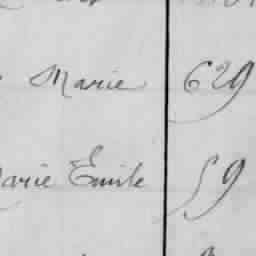 Marie 629
Marie Emile 59